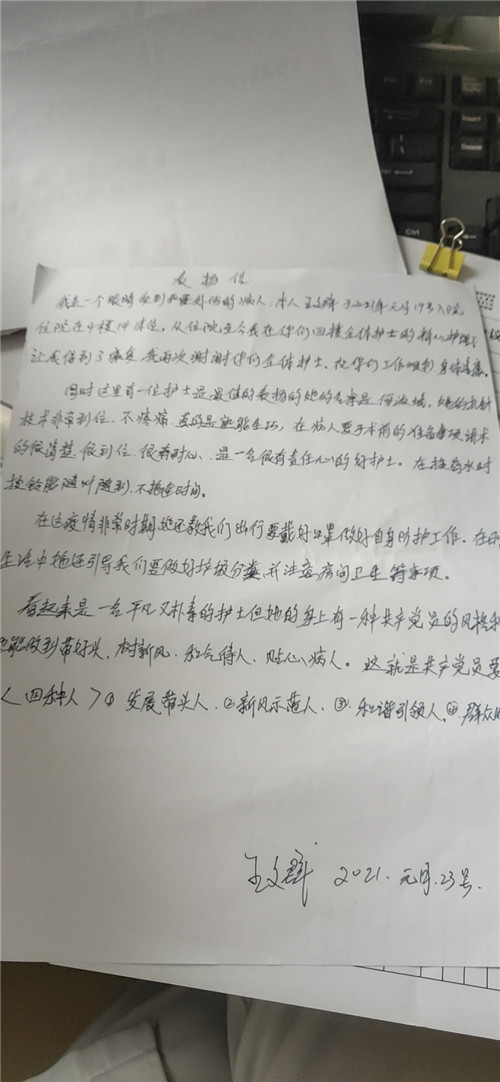 表扬信
我是一个眼睛受到严重外伤的病人，本人王文群于2021年元月19号入院
住院在4楼14床位，从住院至今我在你们四楼全体护士的精心护理
让我得到了康复，我再次谢谢你们全体护士，祝你们工作顺利身体健康。
同时这里有一位护士是最值的表扬的她的名字是何 她的打针
技术非常到位，不疼痛，真的是熟能生巧，在病人要手术前的准备事项讲术
的很清楚，很到位，很有耐心，是一名很有责任心的好护士。在挂药水时
按铃能随叫随到，不拖延时间。
在这疫情非常时期她还教我们出行要戴好口罩做好自身防护工作。在
生活中她还引导我们要做好垃圾分类，并注意房间卫生等事项。
看起来是一名平凡又朴素的护士但她的身上有一种共产党员的风格和
能做到带好头，树新风，和气待人，贴心病人。这就是共产党员要
＜四种人＞①发展带头人，②新风示范人，③和谐引领人，④群众
王文群 2021.元月.23号.
Ctrl
Insert
Delete